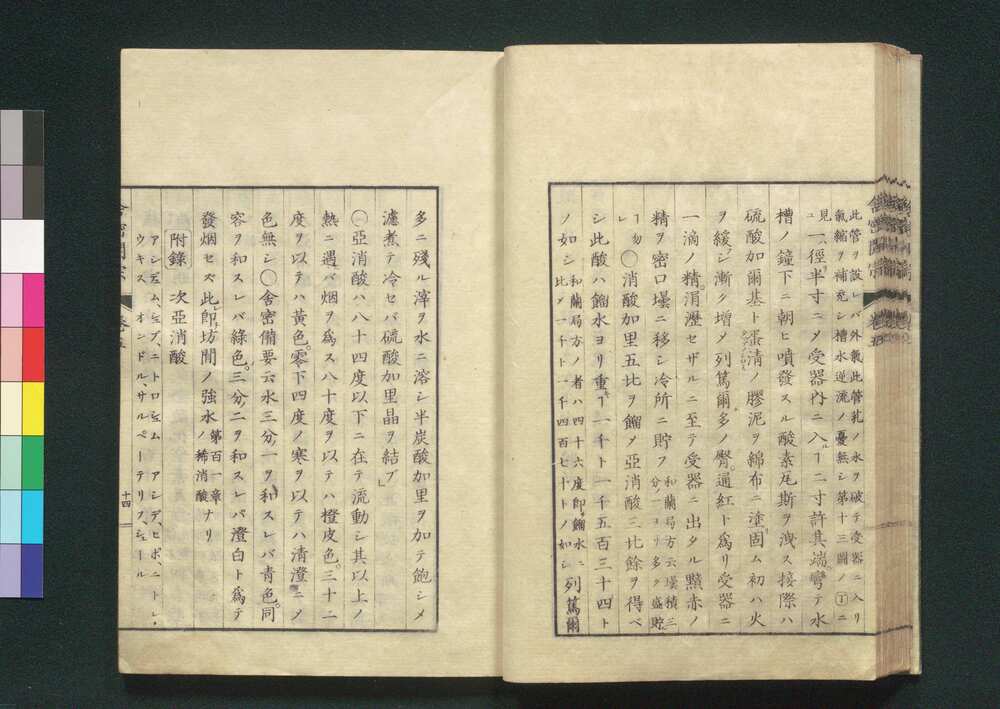 此管ヲ設レバ外氣此管孔ノ水ヲ破テ受器ニ入リ
氣縮ヲ補充シ槽水逆流ノ憂無シ第十三圖ノ丁ニ
見ユ一徑半寸ニメ受器内ニ入ルヿ二寸許其端彎テ水
槽ノ鐘下ニ朝ヒ噴發スル酸素瓦斯ヲ洩ス接際ハ
硫酸加爾基ト蛋清ノ膠泥ヲ綿布ニ塗固ム初ハ火
ヲ緩ジ漸ク增メ列篤爾多ノ臀通紅ト爲リ受器ニ
一滴ノ精涓瀝セザルニ至テ受器ニ出タル黯赤ノ
精ヲ密口壜ニ移シ冷所ニ貯フ
和蘭局方云壜積三
分一ヨリ多ク盛貯
ヿ勿レ
〇消酸加里五比ヲ餾メ亞消酸三比餘ヲ得ベ
シ此酸ハ餾水ヨリ重キヿ一千ト一千五百三十四ト
ノ如シ
和蘭局方ノ者ハ四十六度即餾水ニ
比メ一千ト一千四百七十トノ如シ
列篤爾
多ニ殘ル滓ヲ水ニ溶シ半炭酸加里ヲ加テ飽シメ
濾煮テ冷セバ硫酸加里晶ヲ結ブ」
㊀亞消酸ハ八十四度以下ニ在テ流動シ其以上ノ
熱ニ遇バ烟ヲ爲ス八十度ヲ以テハ橙皮色。三十二
度ヲ以テハ黄色。零下四度ノ寒ヲ以テハ清澄ニメ
色無シ〇舍密備要云水三分一ヲ和スレバ青色。同
容ヲ和スレバ綠色。三分二ヲ和スレバ澄白ト爲テ
發烟セズ此即坊間ノ強水
第百一章
ノ稀消酸
ナリ
附錄 次亞消酸
アシデュム、ニトロシュム アシデ、ヒポ、ニトレ、
ウキス、オンドル、サルペーテリフ、シュール
舎密開宗 卷五
十四